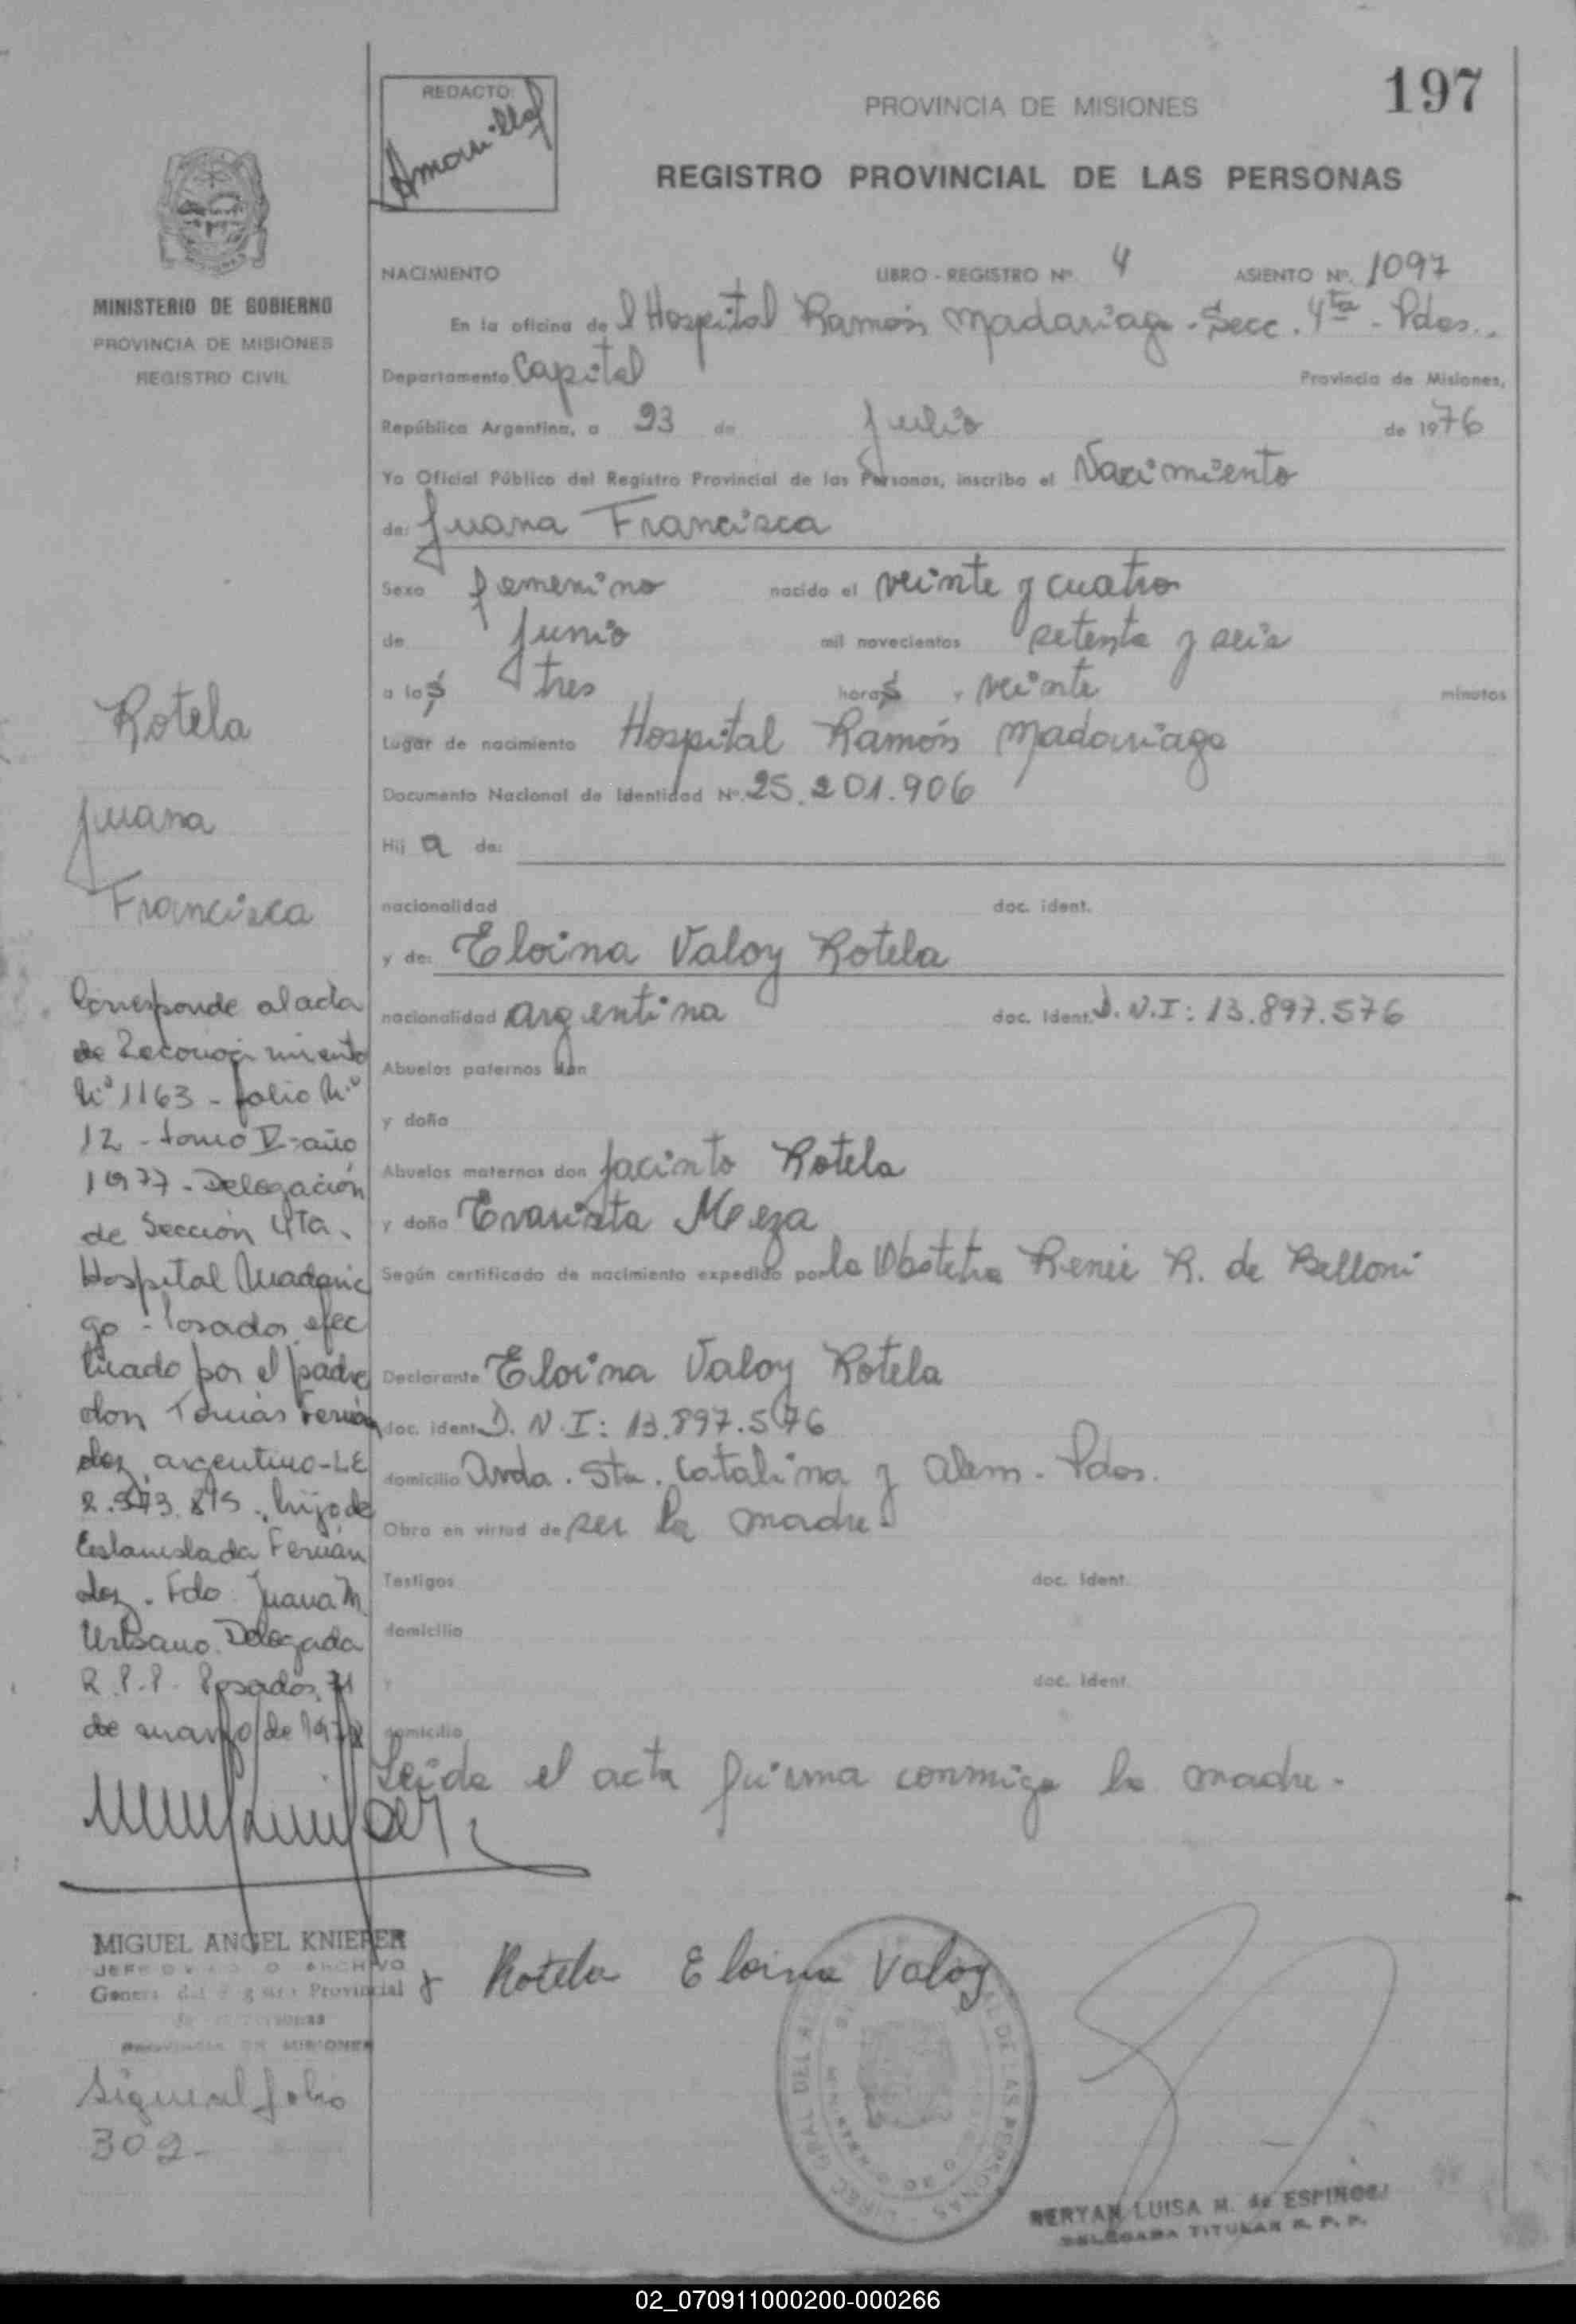 197
REDACTO:
PROVINCIA DE MISIONES
REGISTRO PROVINCIAL DE LAS PERSONAS
MINISTERIO DE GOBIERNO
PROVINCIA DE MISIONES
REGISTRO CIVIL
NACIMIENTO LIBRO - REGISTRO Nº. 4 ASIENTO Nº. 1097
En la oficina de l Hospital Ramón Madariaga - Secc. 4ta - Pdas..
Departamento Capital Provincia de Misiones,
República Argentina, a 23 de Julio de 1976
Yo Oficial Público del Registro Provincial de las Personas, inscribo el Nacimiento
de: Juana Francisca
Sexo femenino nacido el veinte y cuatro
de Junio mil novecientos setenta y seis
a las tres horas y veinte minutos
Lugar de nacimiento Hospital Ramón Madariaga
Documento Nacional de Identidad Nº. 25.201.906
Hij a de:
nacionalidad doc. ident.
y de: Eloina Valoy Rotela
nacionalidad argentina doc. ident. D.N.I: 13.897.576
Abuelos paternos don
y doña
Abuelos maternos don Jacinto Rotela
y doña Evarista Meza
Según certificado de nacimiento expedido por la Obstetra Renée R. de Belloni
Declarante Eloina Valoy Rotela
doc. ident. D.N.I: 13.897.576
domicilio Avda. Sta. Catalina y Alem - Pdas.
Obra en virtud de ser la madre.
Testigos doc. ident.
domicilio
y doc. ident.
domicilio
Leída el acta firma conmigo la madre.
Rotela
Juana
Francisca
Corresponde al acta
de Reconocimiento
Nº 1163 - folio Nº
12 - tomo V - año
1977 - Delegación
de Sección 4ta.
Hospital Madaria
ga - Posadas, efec
tuado por el padre
don Tomás Fernán
dez, argentino - LE
hijo de
Estanislada Fernán
dez. Fdo. Juana M.
Urbano. Delegada
R.P.P. Posadas,
de marzo de 1978
MIGUEL ANGEL KNIEPER
General del Registro Provincial
de las personas
PROVINCIA DE MISIONES
Sigue al folio
302-
Rotela Eloina Valoy
LUISA M. de ESPINOSA
DELEGADA TITULAR R. P. P.
02_070911000200-000266